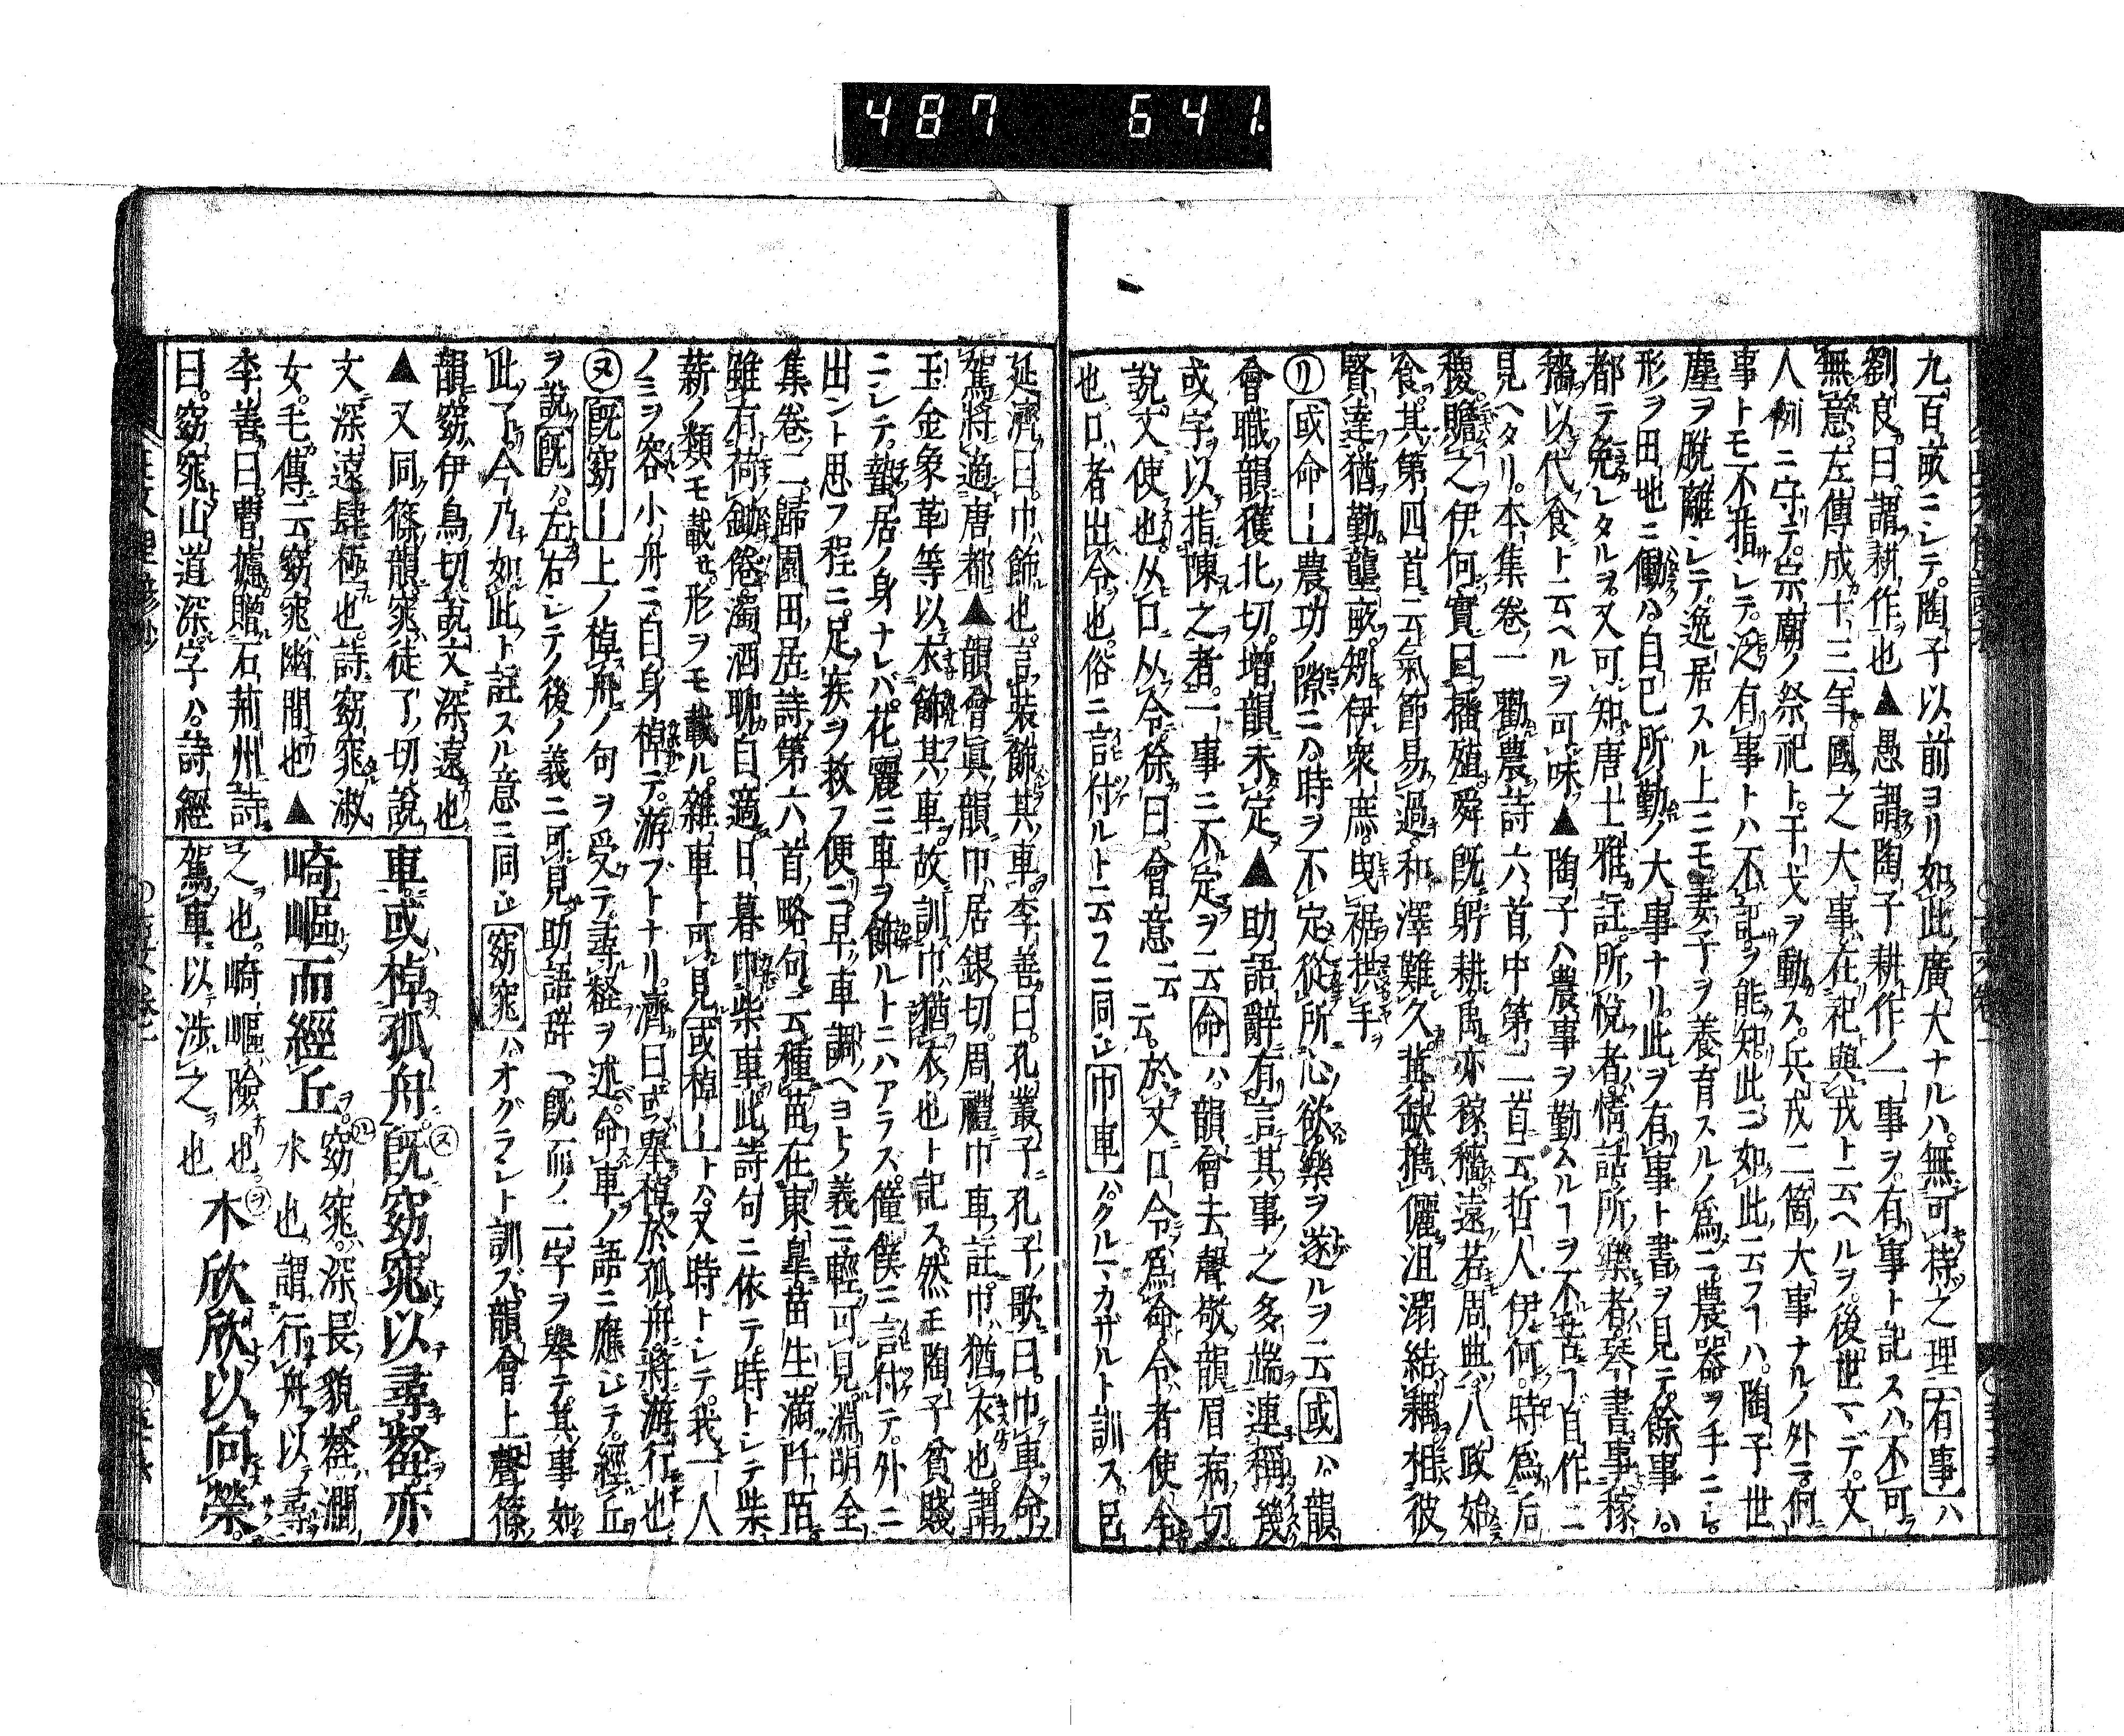 487 641.
九百畝ニシテ。陶子以前ヨリ如此廣大ナルハ。無可待之理 有事ハ
劉良曰謂耕作也▲愚謂陶子耕作ノ一事ヲ。有事ト記スハ不可
無意。左傳成十三年。國之大事在祀與戎ト云ヘルヲ。後世マデ。文
人例ニ守テ。宗廟ノ祭祀ト。干戈ヲ動ス。兵戎二箇ノ大事ナルノ外ニ何
事トモ不指シテ。泛有事トハ不記ヲ能知。此ニ如此云フヿハ。陶子世
塵ヲ脱離シテ。逸居スル上ニモ妻子ヲ養育スルノ爲ニ。農器ヲ手ニシ。
形ヲ田地ニ働ハ。自己所勤ノ大事ナリ。此ヲ有事ト書ヲ見テ餘事ハ。
都テ免レタルヲ。又可知。唐士雅註。所悅者。情話所樂者。琴書事稼
穡以代食ト云ヘルヲ可味▲陶子ハ農事ヲ勤ムルヿヲ不苦ヿ自作ニ
見ヘタリ。本集卷一勸農詩六首ノ中第二首云。哲人伊何。時爲后
稷。贍之伊何。實曰播殖。舜既躬耕。禹亦稼穡。遠若周典。八政始
食。其第四首云。氣節易過。和澤難久。冀缺攜儷。沮溺結耦。相彼
賢達。猶勤壟畝。矧伊衆庶。曳裾拱手。
リ 或命ー 農功ノ隙ニハ。時ヲ不定從所心欲樂ヲ遂ルヲ云 或ハ。韻
會職韻獲北切。增韻未定▲助語辭有言其事之多端連稱幾
或字以指陳之者。一事ニ不定ヲ云 命ハ。韻會去聲敬韻眉病切。
說文使也。从口从令。徐曰。會意云云。於文口令爲命。令者使令
也。口者出令也。俗ニ言付ルト云フニ同シ 巾車ハ。クルマカザルト訓ス。呂
延濟曰。巾飾也。言裝飾其車。李善曰。孔叢子ニ孔子歌曰。巾車命
駕。將適唐都▲韻會眞韻巾居銀切。周禮巾車註。巾猶衣也。謂
玉金象革等以衣飾其車。故訓巾猶衣也ト記ス。然モ陶子貧賤
ニシテ。蟄居ノ身ナレバ。花麗ニ車ヲ飾ルトニハアラズ。僮僕ニ言付テ。外ニ
出ント思フ程ニ。足疾ヲ救フ便ニ早ク車調ヘヨトノ義ニ輕可見。淵明全
集卷二歸園田居詩第六首ノ略句云。種苗在東皐。苗生滿阡陌。
雖有荷鋤倦。濁酒聊自適。日暮巾柴車。此詩句ニ依テ。時トシテ柴
薪ノ類モ載セ。形ヲモ載ル。雜車ト可見 或棹ー トハ。又時トシテ。我一人
ノミヲ容小舟ニ。自身棹テ。游ブトナリ。濟曰。或舉棹於孤舟。將游行也
ヌ 既窈ー 上ノ棹舟ノ句ヲ受テ。尋壑ヲ述。命車ノ語ニ應シテ。經丘
ヲ說 既ハ。左右シテノ後ノ義ニ可見。助語辞ニ。既而ノ二字ヲ舉テ。其事如
此了。今乃如此ト註スル意ニ同シ 窈窕ハ。オグラシト訓ズ。韻會上聲篠
韻。窈伊鳥切。說文深遠也
▲又同篠韻。窕徒了切。說
文深遠肆極也。詩窈窕淑
女。毛傳ニ云。窈窕幽間也▲
李善曰。曹攄贈石荊州詩
曰。窈窕山道深。字ハ。詩經
車或棹孤舟。既窈窕以尋壑亦
崎嶇而經丘。窈窕。深長貌。壑澗水也。謂行舟以尋
之也。崎嶇險也。駕車以涉之也
木欣欣以向榮。